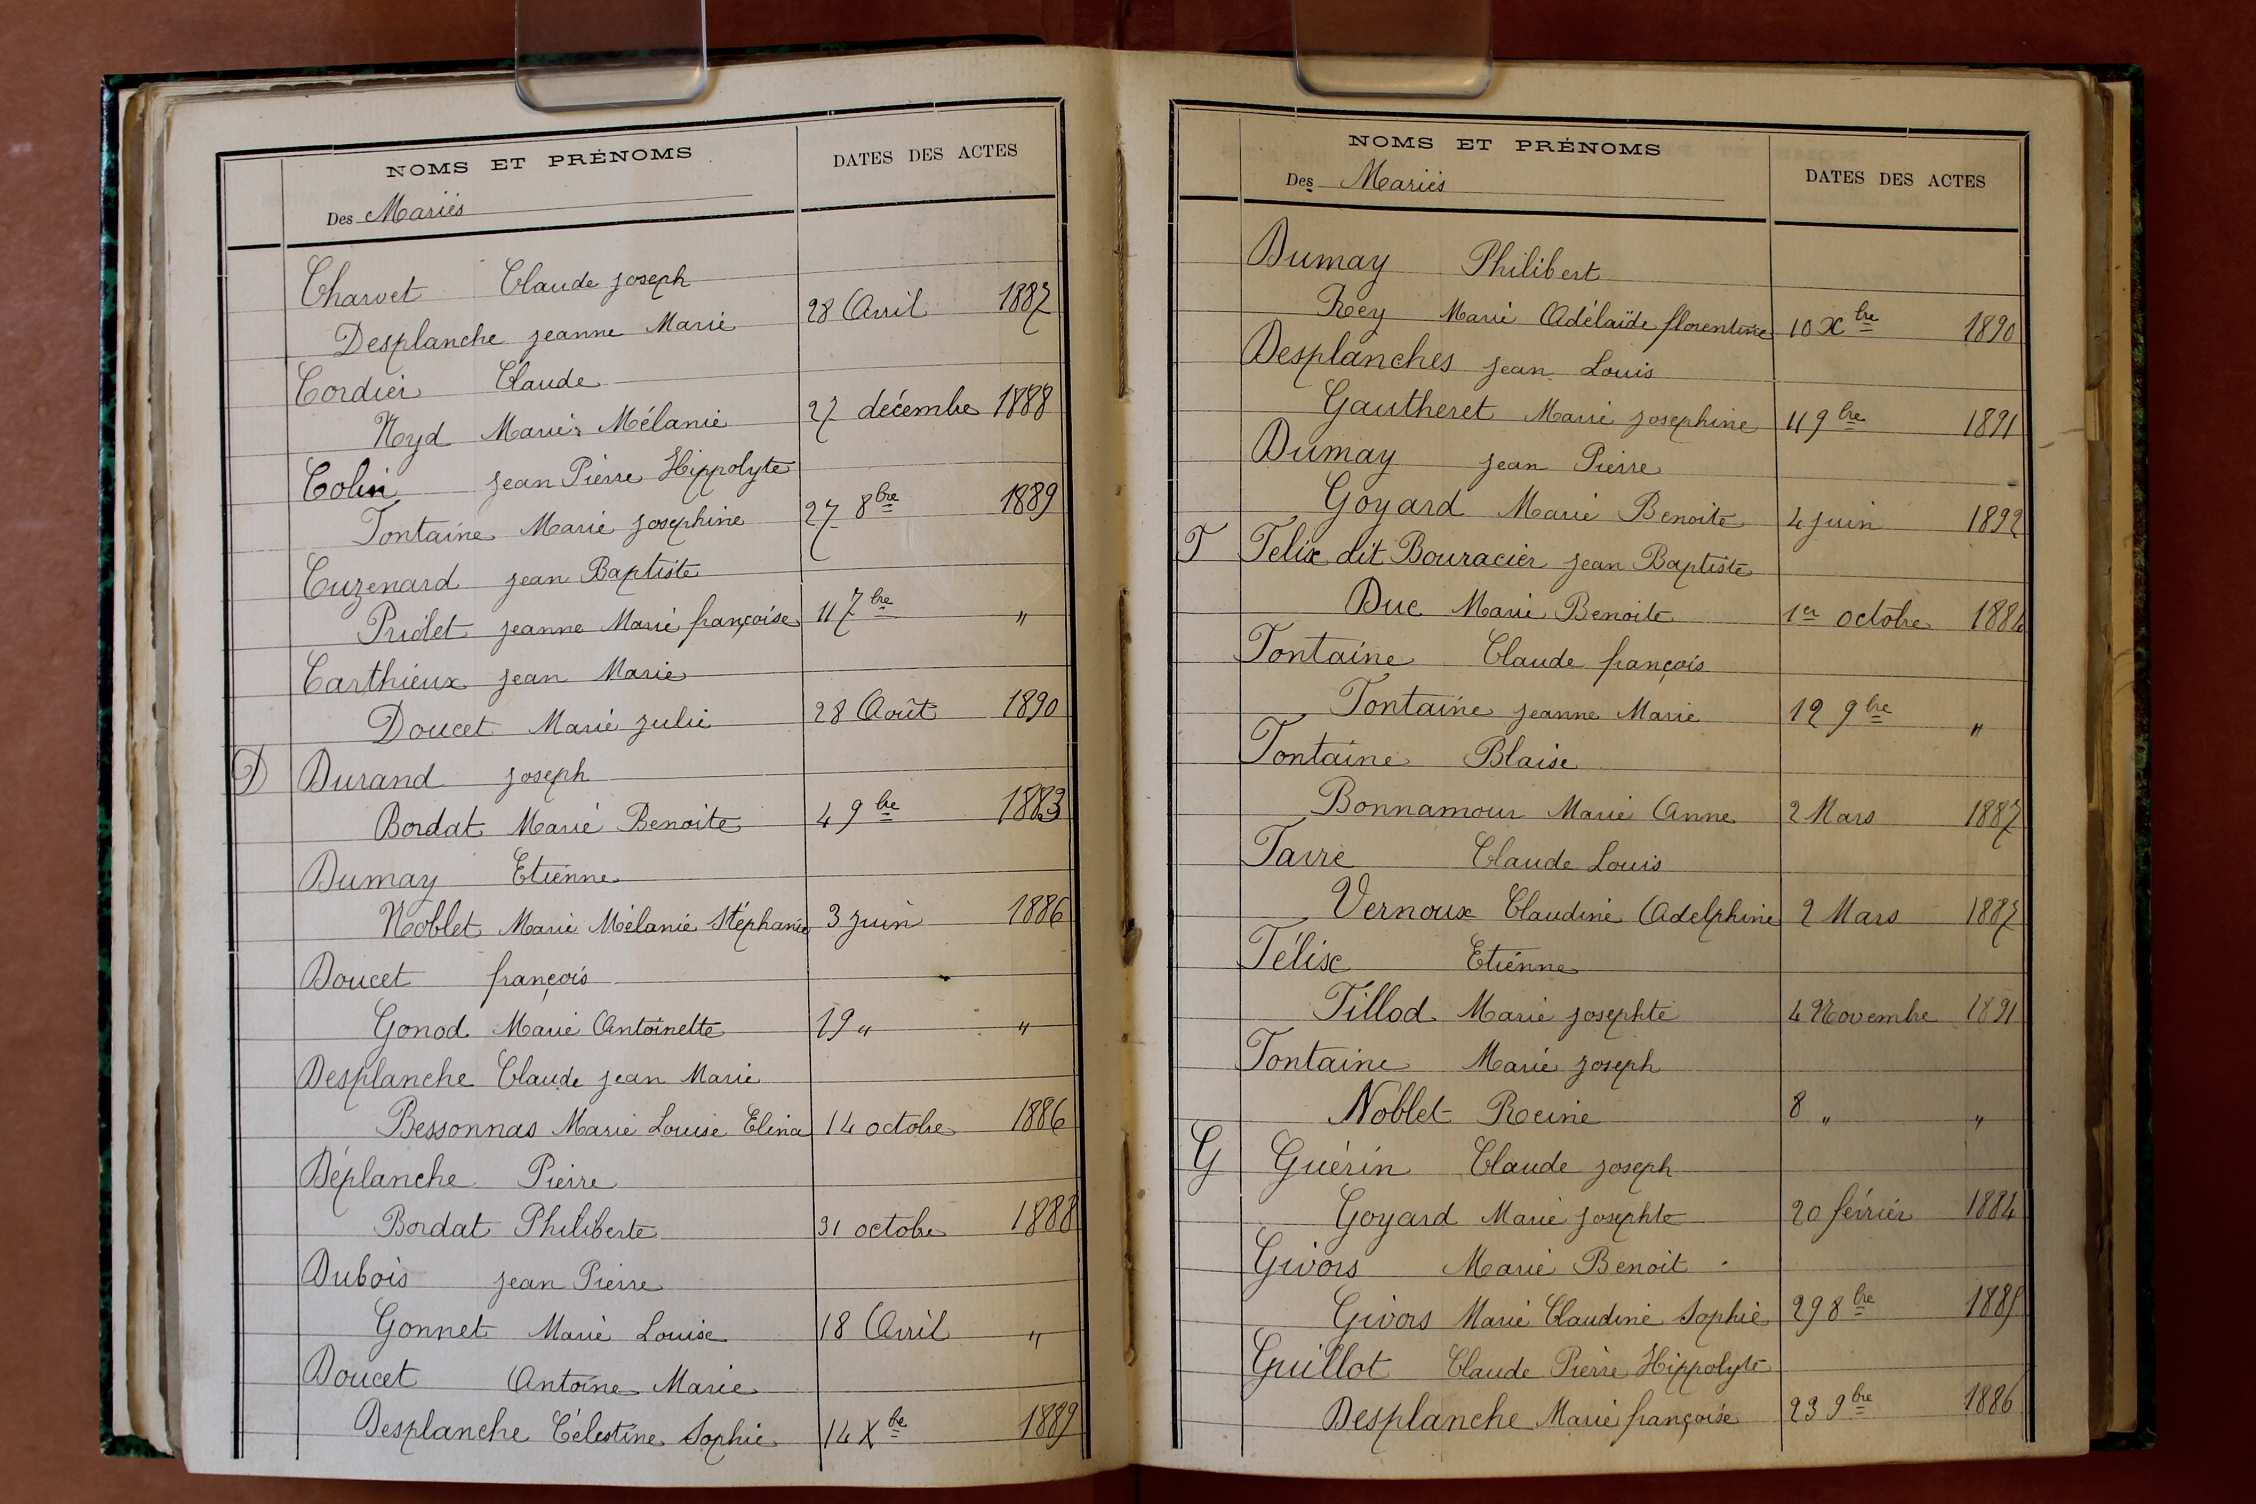 NOMS ET PRÉNOMS
Des Mariés
DATES DES ACTES
Charvet Claude Joseph
Desplanche Jeanne Marie 28 Avril 1887
Cordier Claude
Nyd Marie Mélanie 27 décembre 1888
Colin Jean Pierre Hippolyte
Fontaine Marie Josephine 27 8bre 1889
Cuzenard Jean Baptiste
Priolet Jeanne Marie françoise 11 7bre "
Carthieux Jean Marie
Doucet Marie Julie 28 Août 1890
D Durand Joseph
Bordat Marie Benoite 4 9bre 1883
Dumay Etienne
Noblet Marie Mélanie Stéphanie 3 Juin 1886
Doucet françois
Gonod Marie Antoinette 19 " "
Desplanche Claude Jean Marie
Bessonnas Marie Louise Elina 14 octobre 1886
Déplanche Pierre
Bordat Philiberte 31 octobre 1888
Dubois Jean Pierre
Gonnet Marie Louise 18 Avril "
Doucet Antoine Marie
Desplanche Célestine Sophie 14 Xbre 1889
NOMS ET PRÉNOMS
Des Mariés
DATES DES ACTES
Dumay Philibert
Rey Marie Adélaïde florentine 10 Xbre 1890
Desplanches Jean Louis
Gautheret Marie Josephine 11 9bre 1891
Dumay Jean Pierre
Goyard Marie Benoite 4 Juin 1892
F Felix dit Bouracier Jean Baptiste
Duc Marie Benoite 1er octobre 1884
Fontaine Claude françois
Fontaine Jeanne Marie 12 9bre "
Fontaine Blaise
Bonnamour Marie Anne 2 Mars 1887
Favre Claude Louis
Vernoux Claudine Adelphine 2 Mars 1887
Félix Etienne
Tillod Marie Josephte 4 Novembre 1891
Fontaine Marie Joseph
Noblet Reine 8 " "
G Guérin Claude Joseph
Goyard Marie Josephte 20 février 1884
Givors Marie Benoit
Givors Marie Claudine Sophie 29 8bre 1885
Guillot Claude Pierre Hippolyte
Desplanche Marie françoise 23 9bre 1886